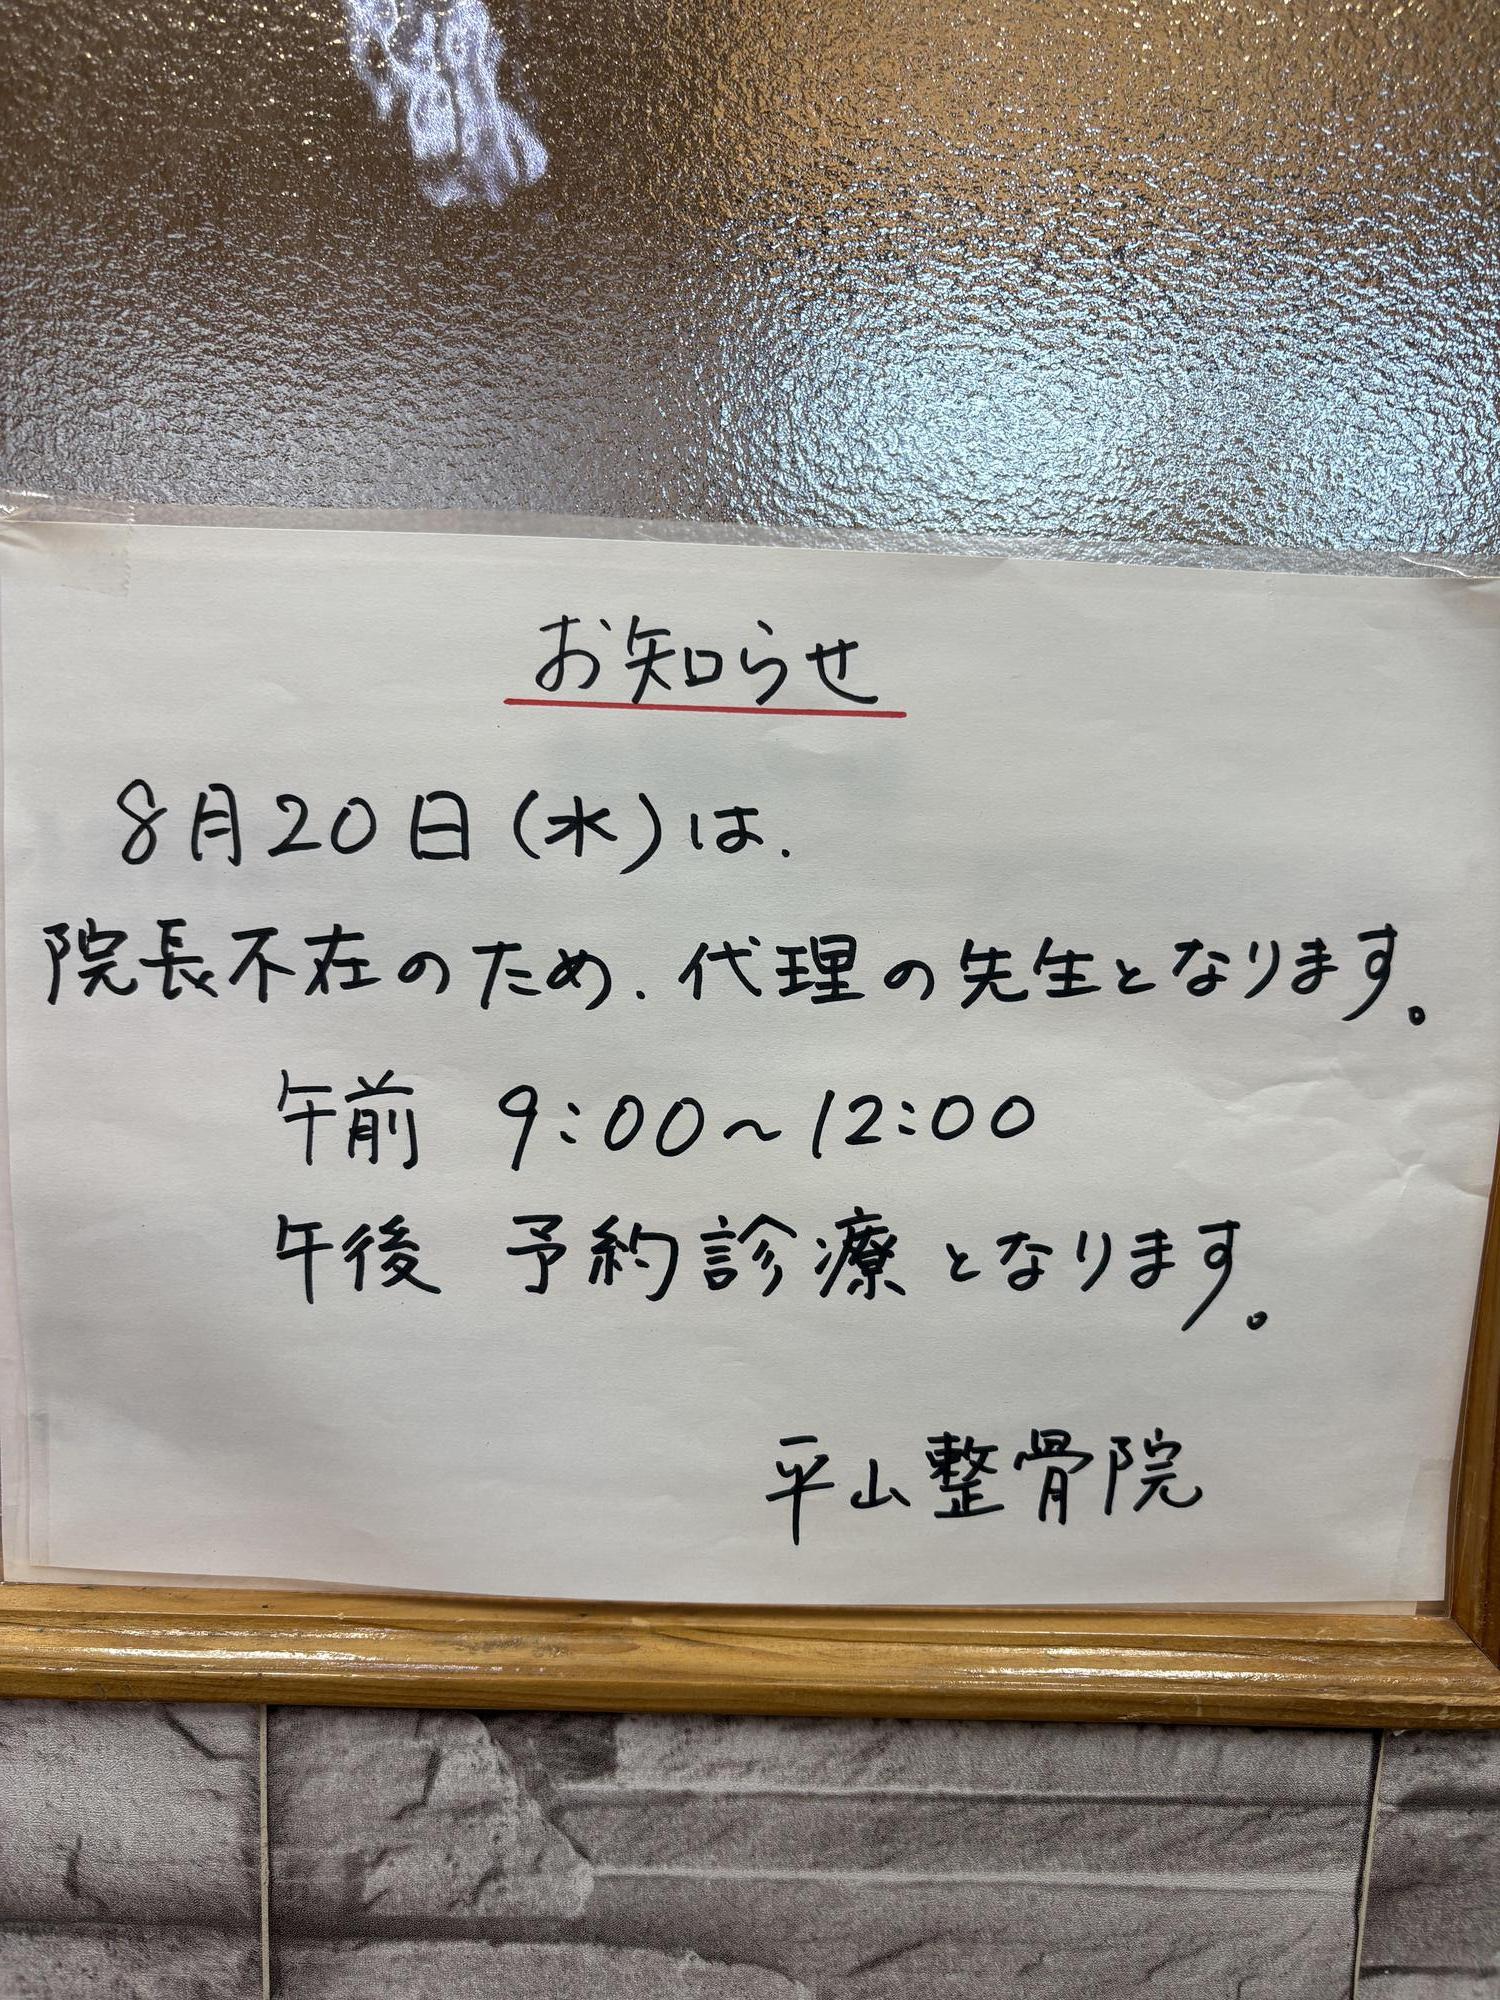 お知らせ
8月20日(水)は、
院長不在のため、代理の先生となります。
午前 9:00～12:00
午後 予約診療となります。
平山整骨院